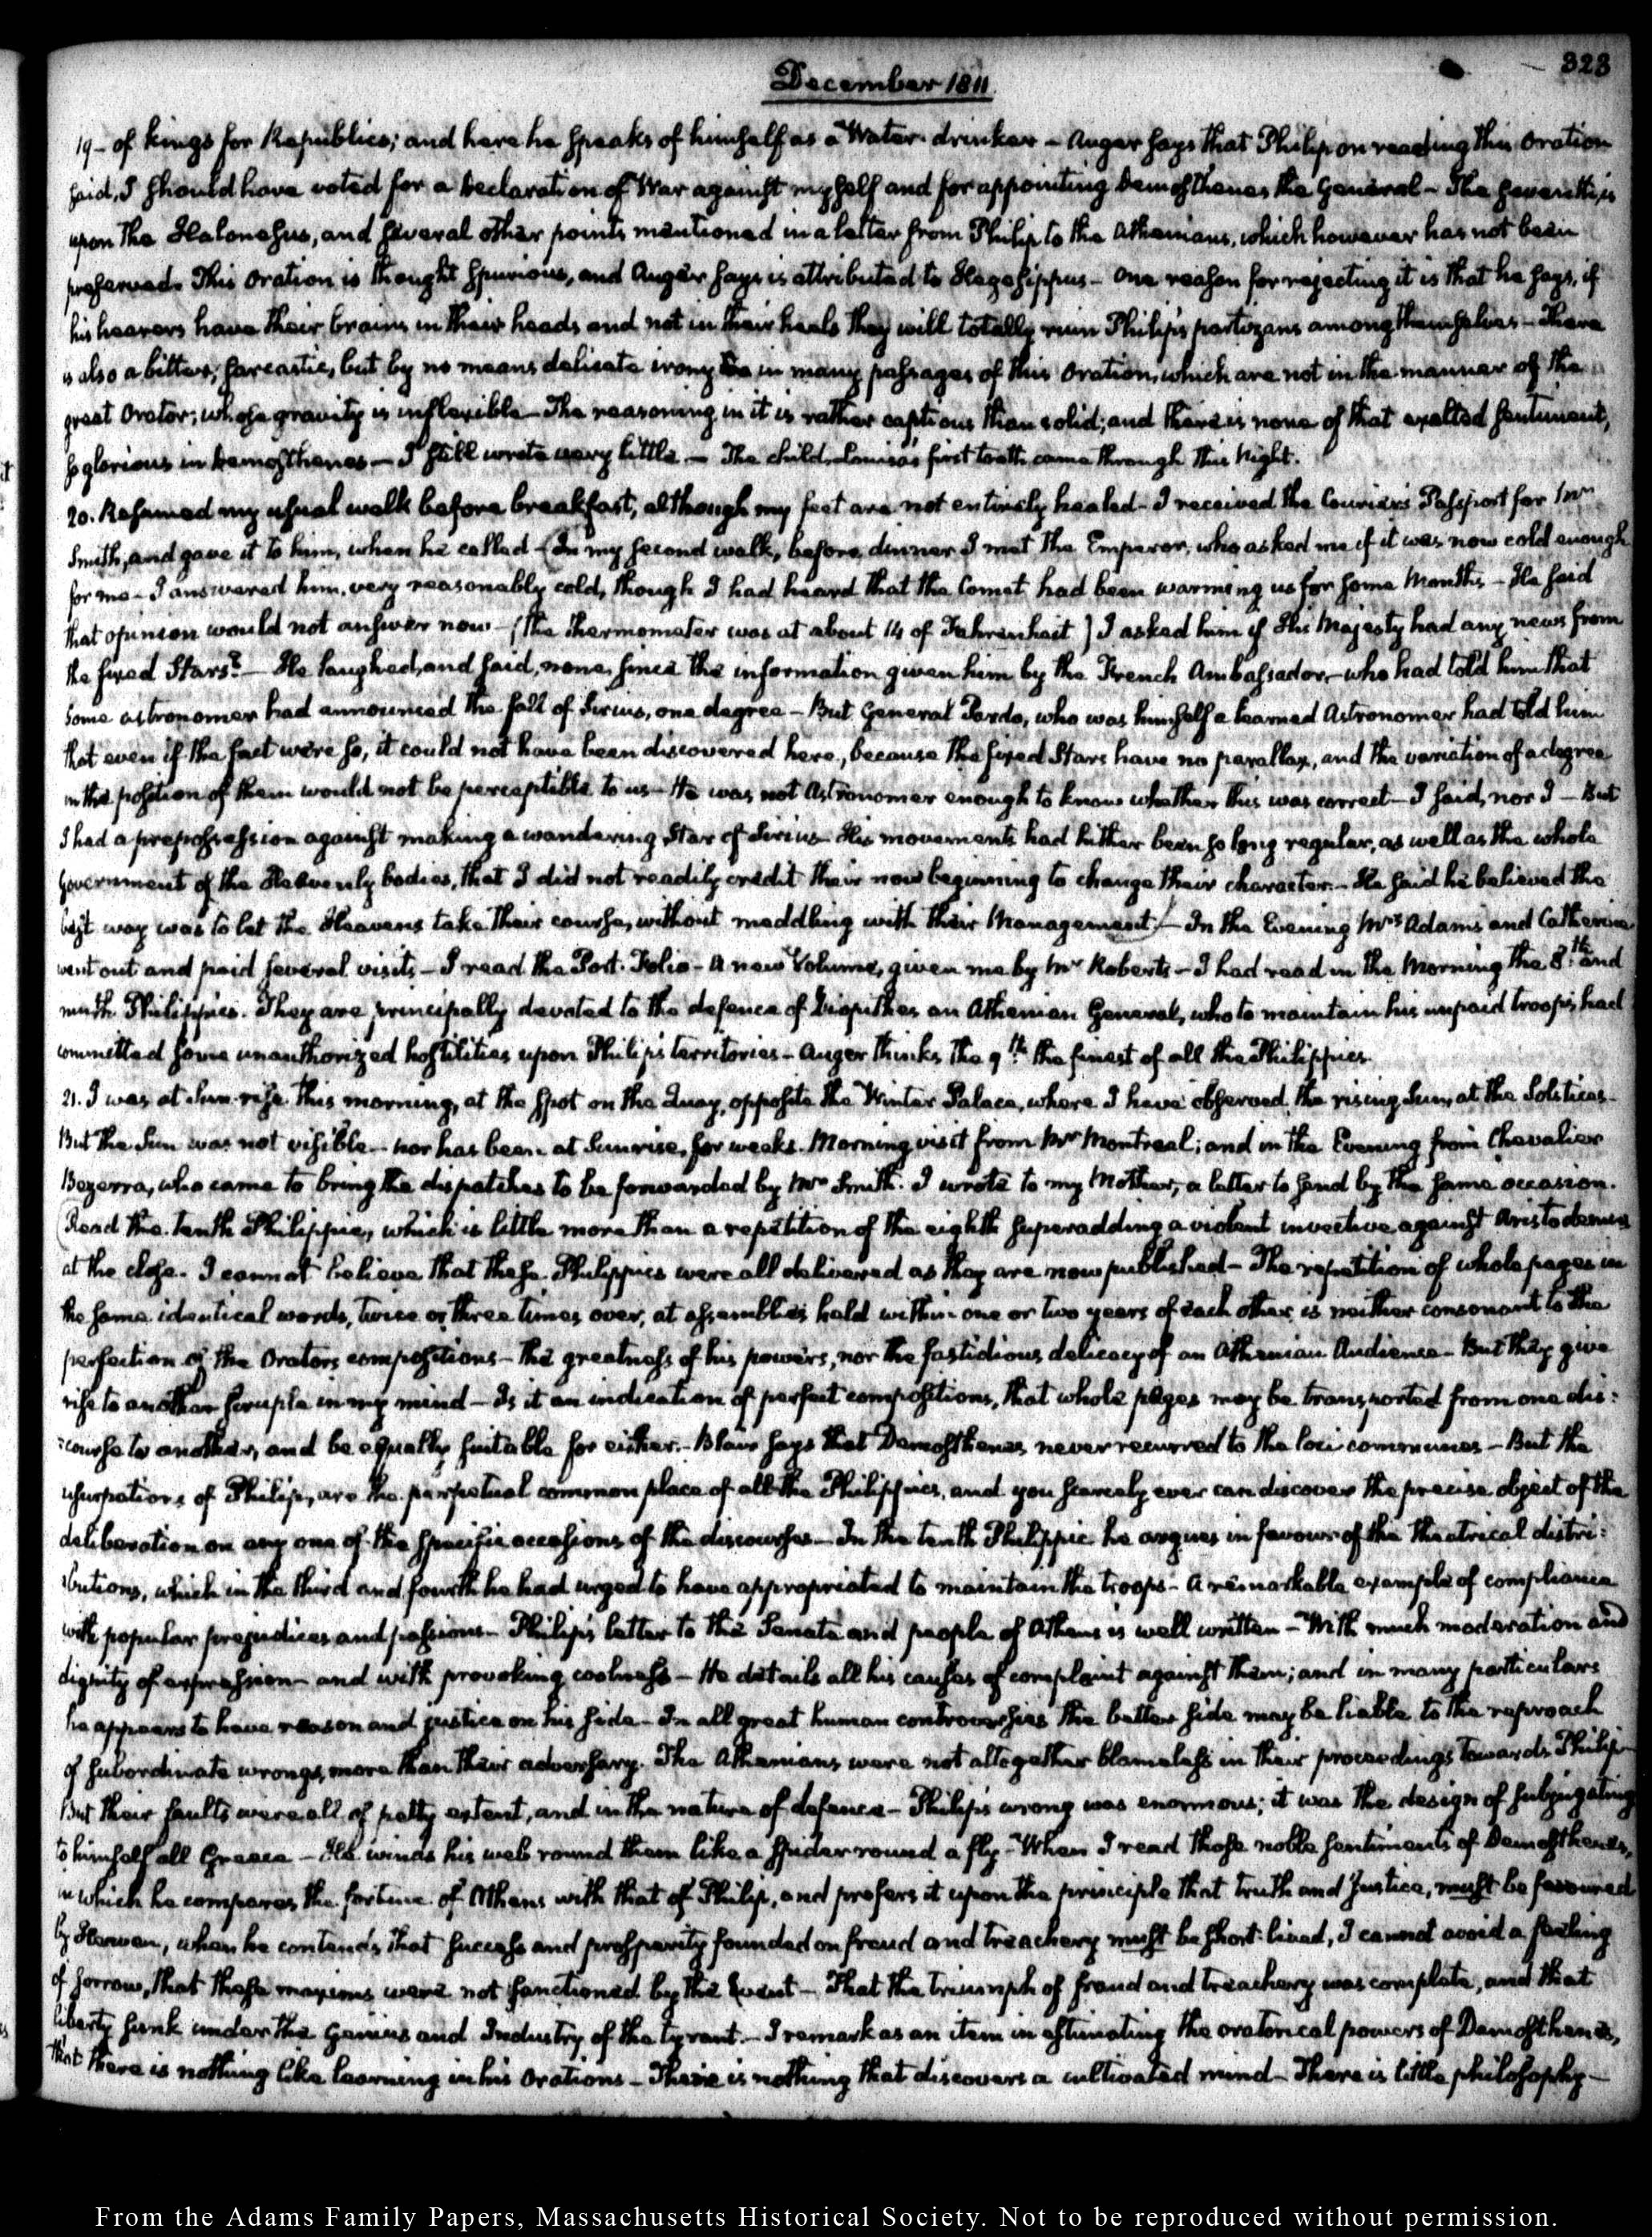 323
December 1811
19 – of kings for Republics; and here he speaks of himself as a Water-drinker – Auger says that Philip on reading this Oration
said, I should have voted for a Declaration of War against myself and for appointing Demosthenes the General – The seventh, is
upon the Halonesus, and several other points mentioned in a letter from Philip to the Athenians, which however has not been
preserved. This Oration is thought spurious, and Auger says is attributed to Hegesippus – One reason for rejecting it is that he says, if
his hearers have their brains in their heads and not in their heels they will totally ruin Philip's partizans among themselves – There
is also a bitter, sarcastic, but by no means delicate irony in many passages of this Oration, which are not in the manner of the
great Orator; whose gravity is inflexible – The reasoning in it is rather captious than solid; and there is none of that exalted sentiment,
so glorious in Demosthenes – I still wrote very little – The child Louisa's first tooth came through this Night.
20. Resumed my usual walk before breakfast, although my feet are not entirely healed – I received the Courier's Passport for Mr
Smith, and gave it to him, when he called – (In my second walk, before dinner I met the Emperor, who asked me if it was now cold enough
for me – I answered him, very reasonably cold, though I had heard that the Comet had been warming us for some Months – He said
that opinion would not answer now – (the thermometer was at about 14 of Fahrenheit) I asked him if His Majesty had any news from
the fixed Stars? – He laughed, and said, none, since the information given him by the French Ambassador, – who had told him that
some astronomer had announced the fall of Sirius, one degree – But General Pardo, who was himself a learned Astronomer had told him
that even if the fact were so, it could not have been discovered here, because the fixed Stars have no parallax, and the variation of a degree
in the position of them would not be perceptible to us – He was not Astronomer enough to know whether this was correct – I said, nor I – But
I had a prepossession against making a wandering Star of Sirius – His movements had hither been so long regular, as well as the whole
Government of the Heavenly bodies, that I did not readily credit their now beginning to change their character. – He said he believed the
best way was to let the Heavens take their course, without meddling with their Management.) – In the Evening Mrs Adams and Catherine
went out and paid several visits – I read the Port-Folio – A new Volume, given me by Mr Roberts – I had read in the Morning the 8th and
ninth Philippics. They are principally devoted to the defence of Diopithes an Athenian General, who to maintain his unpaid troops, had
committed some unauthorized hostilities upon Philip's territories – Auger thinks the 9th the finest of all the Philippics.
21. I was at Sun-rise this morning, at the spot on the Quay, opposite the Winter Palace, where I have observed the rising Sun, at the Solstices –
But the Sun was not visible – nor has been at Sunrise, for weeks. Morning visit from Mr Montreal; and in the Evening from Chevalier
Bezerra, who came to bring the dispatches to be forwarded by Mr Smith. I wrote to my Mother, a letter to send by the same occasion.
(Read the tenth Philippic, which is little more than a repetition of the eighth superadding a violent invective against Aristodemus
at the close. I cannot believe that these Philippics were all delivered as they are now published – The repetition of whole pages in
the same identical words, twice or three times over, at assemblies held within one or two years of each other, is neither consonant to the
perfection of the Orators compositions – the greatness of his powers, nor the fastidious delicacy of an Athenian Audience – But they give
rise to another scruple in my mind – Is it an indication of perfect compositions, that whole pages may be transported from one dis:
:course to another, and be equally suitable for either. – Blair says that Demosthenes never recurred to the loci communes – But the
usurpations of Philip, are the perpetual common place of all the Philippics, and you scarcely ever can discover the precise object of the
deliberation on any one of the specific occasions of the discourses – In the tenth Philippic he argues in favour of the theatrical distri:
:butions, which in the third and fourth he had urged to have appropriated to maintain the troops – A remarkable example of compliance
with popular prejudices and passions – Philip's letter to the Senate and people of Athens is well written – With much moderation and
dignity of expression – and with provoking coolness – He details all his causes of complaint against them; and in many particulars
he appears to have reason and justice on his side – In all great human controversies the better side may be liable to the reproach
of subordinate wrongs, more than their adversary. The Athenians were not altogether blameless in their proceedings towards Philip –
But their faults were all of petty extent, and in the nature of defence – Philip's wrong was enormous; it was the design of subjugating
to himself all Greece – He winds his web round them like a spider round a fly – When I read those noble sentiments of Demosthenes,
in which he compares the fortune of Athens with that of Philip, and prefers it upon the principle that truth and Justice, must be favoured
by Heaven, when he contends that success and prosperity founded on fraud and treachery must be short-lived, I cannot avoid a feeling
of sorrow, that these maxims were not sanctioned by the Event – That the triumph of fraud and treachery was complete, and that
liberty sunk under the Genius and Industry of the tyrant. – I remark as an item in estimating the oratorical powers of Demosthenes,
that there is nothing like learning in his Orations – There is nothing that discovers a cultivated mind – There is little philosophy –
From the Adams Family Papers, Massachusetts Historical Society. Not to be reproduced without permission.